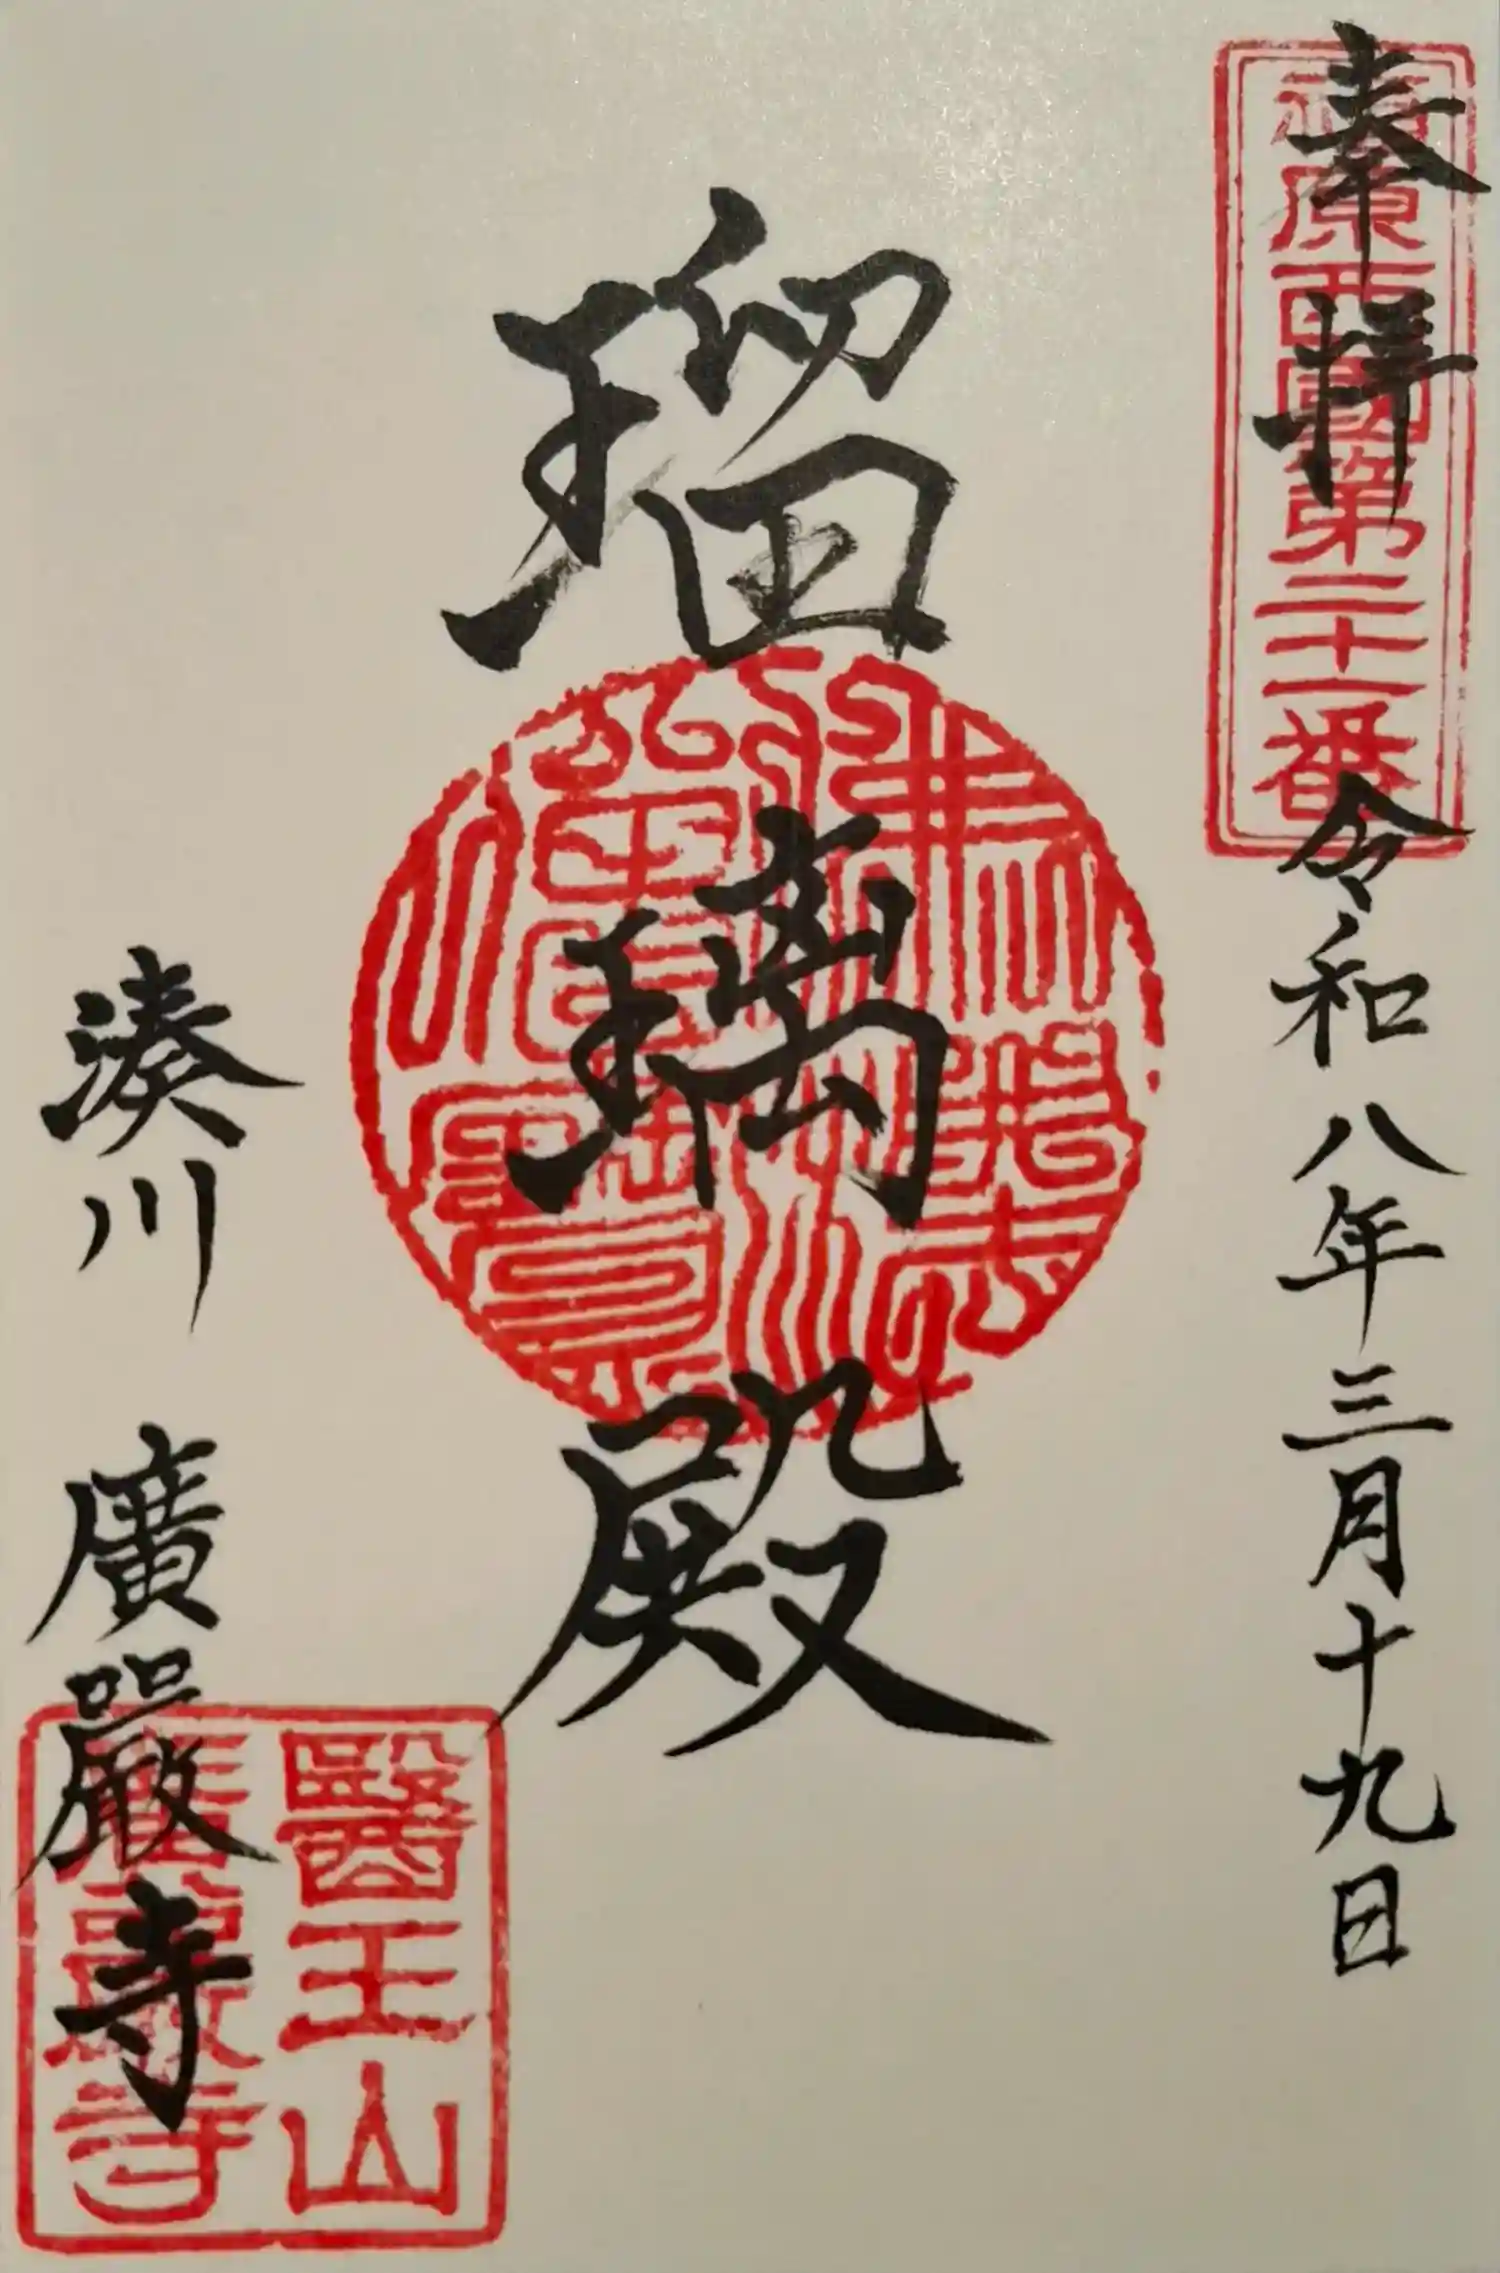 奉拝 令和八年三月十九日
福原西國第二十一番
瑠璃殿
湊川 廣嚴寺
醫王山
廣嚴寺